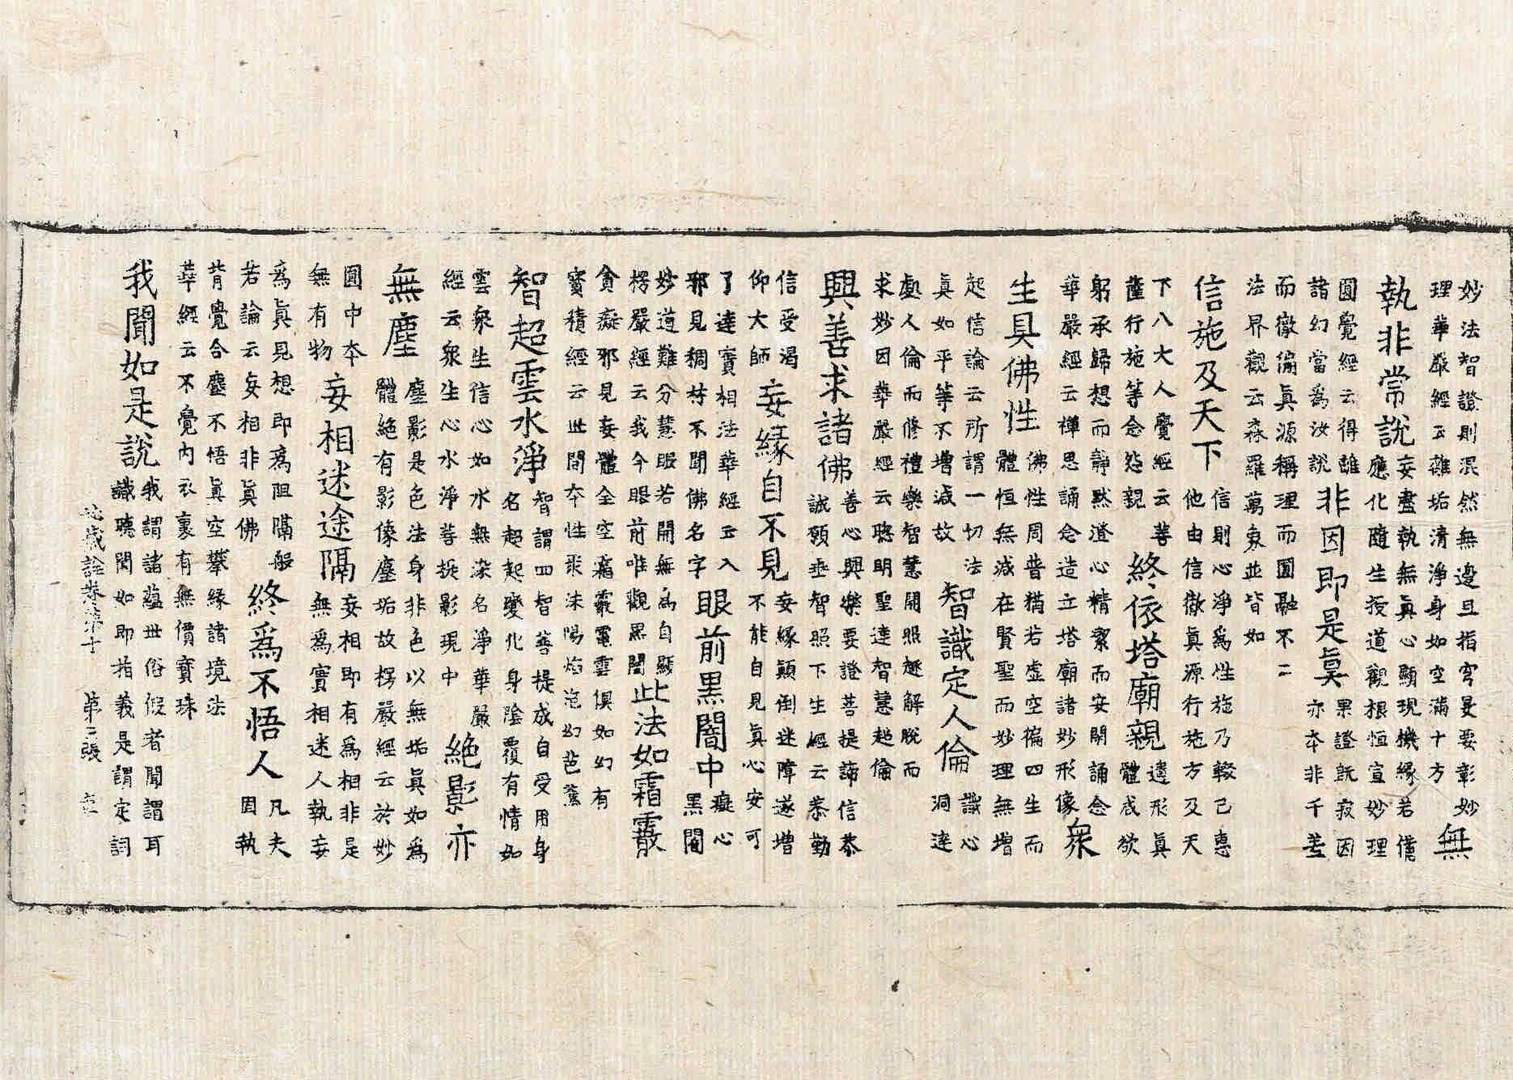 妙法智證則混然無邊旦指宮曼要彰妙
理華嚴經云離垢清淨身如空滿十方
無
執非常說
妄盡執無眞心顯現機緣若儻
應化隨生投道觀根恒宣妙理
圓覺經云得離
諸幻當爲汝說
非因即是眞
果證旣寂因
亦本非千差
而徹徧眞源稱理而圓融不二
法界觀云森羅萬象並皆如
信施及天下
信則心淨爲性施乃轂己惠
他由信徹眞源行施方及天
下八大人覺經云菩
薩行施等念怨親
終依塔廟親
遠形眞
體感欲
躬承歸想而靜默澄心精潔而安閑誦念
華嚴經云禪思誦念造立塔廟諸妙形像
衆
生具佛性
佛性周普猶若虛空徧四生而
體恒無減在賢聖而妙理無增
起信論云所謂一切法
眞如平等不增減故
智識定人倫
識心
洞達
處人倫而修禮樂智慧開照越解脫而
求妙因華嚴經云聰明聖達智慧超倫
興善求諸佛
善心興樂要證菩提諦信恭
誠願垂智照下生經云恭勤
信受渴
仰大師
妄緣自不見
妄緣顛倒迷障遂增
不能自見眞心安可
了達實相法華經云入
邪見稠林不聞佛名字
眼前黑闇中
癡心
黑闇
妙道難分慧眼若開無爲自顯
楞嚴經云我今眼前唯觀黑闇
此法如霜霰
貪癡邪見妄體全空霜霰電雲俱如幻有
寶積經云世間本性聚沫陽焰泡幻芭蕉
智超雲水淨
智謂四智菩提成自受用身
名超起變化身陰覆有情如
雲衆生信心如水無染名淨華嚴
經云衆生心水淨菩提影現中
絶影亦
無塵
塵影是色法身非色以無垢眞如爲
體絶有影像塵垢故楞嚴經云於妙
圓中本
無有物
妄相迷途隔
妄相即有爲相非是
無爲實相迷人執妄
爲眞見想即爲阻隔般
若論云妄相非眞佛
終爲不悟人
凡夫
因執
背覺合塵不悟眞空攀緣諸境法
華經云不覺內衣裏有無價寶珠
我聞如是說
我謂諸蘊世俗假者聞謂耳
識聽聞如即指義是謂定詞
祕藏詮卷第十 第二張